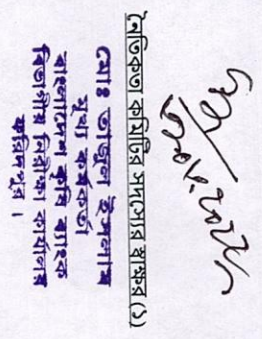 নৈতিকতা কমিটির সদস্যের স্বাক্ষর (১)
মোঃ তাজুল ইসলাম
মুখ্য কর্মকর্তা
বাংলাদেশ কৃষি ব্যাংক
বিভাগীয় নিরীক্ষা কার্যালয়
ফরিদপুর ।